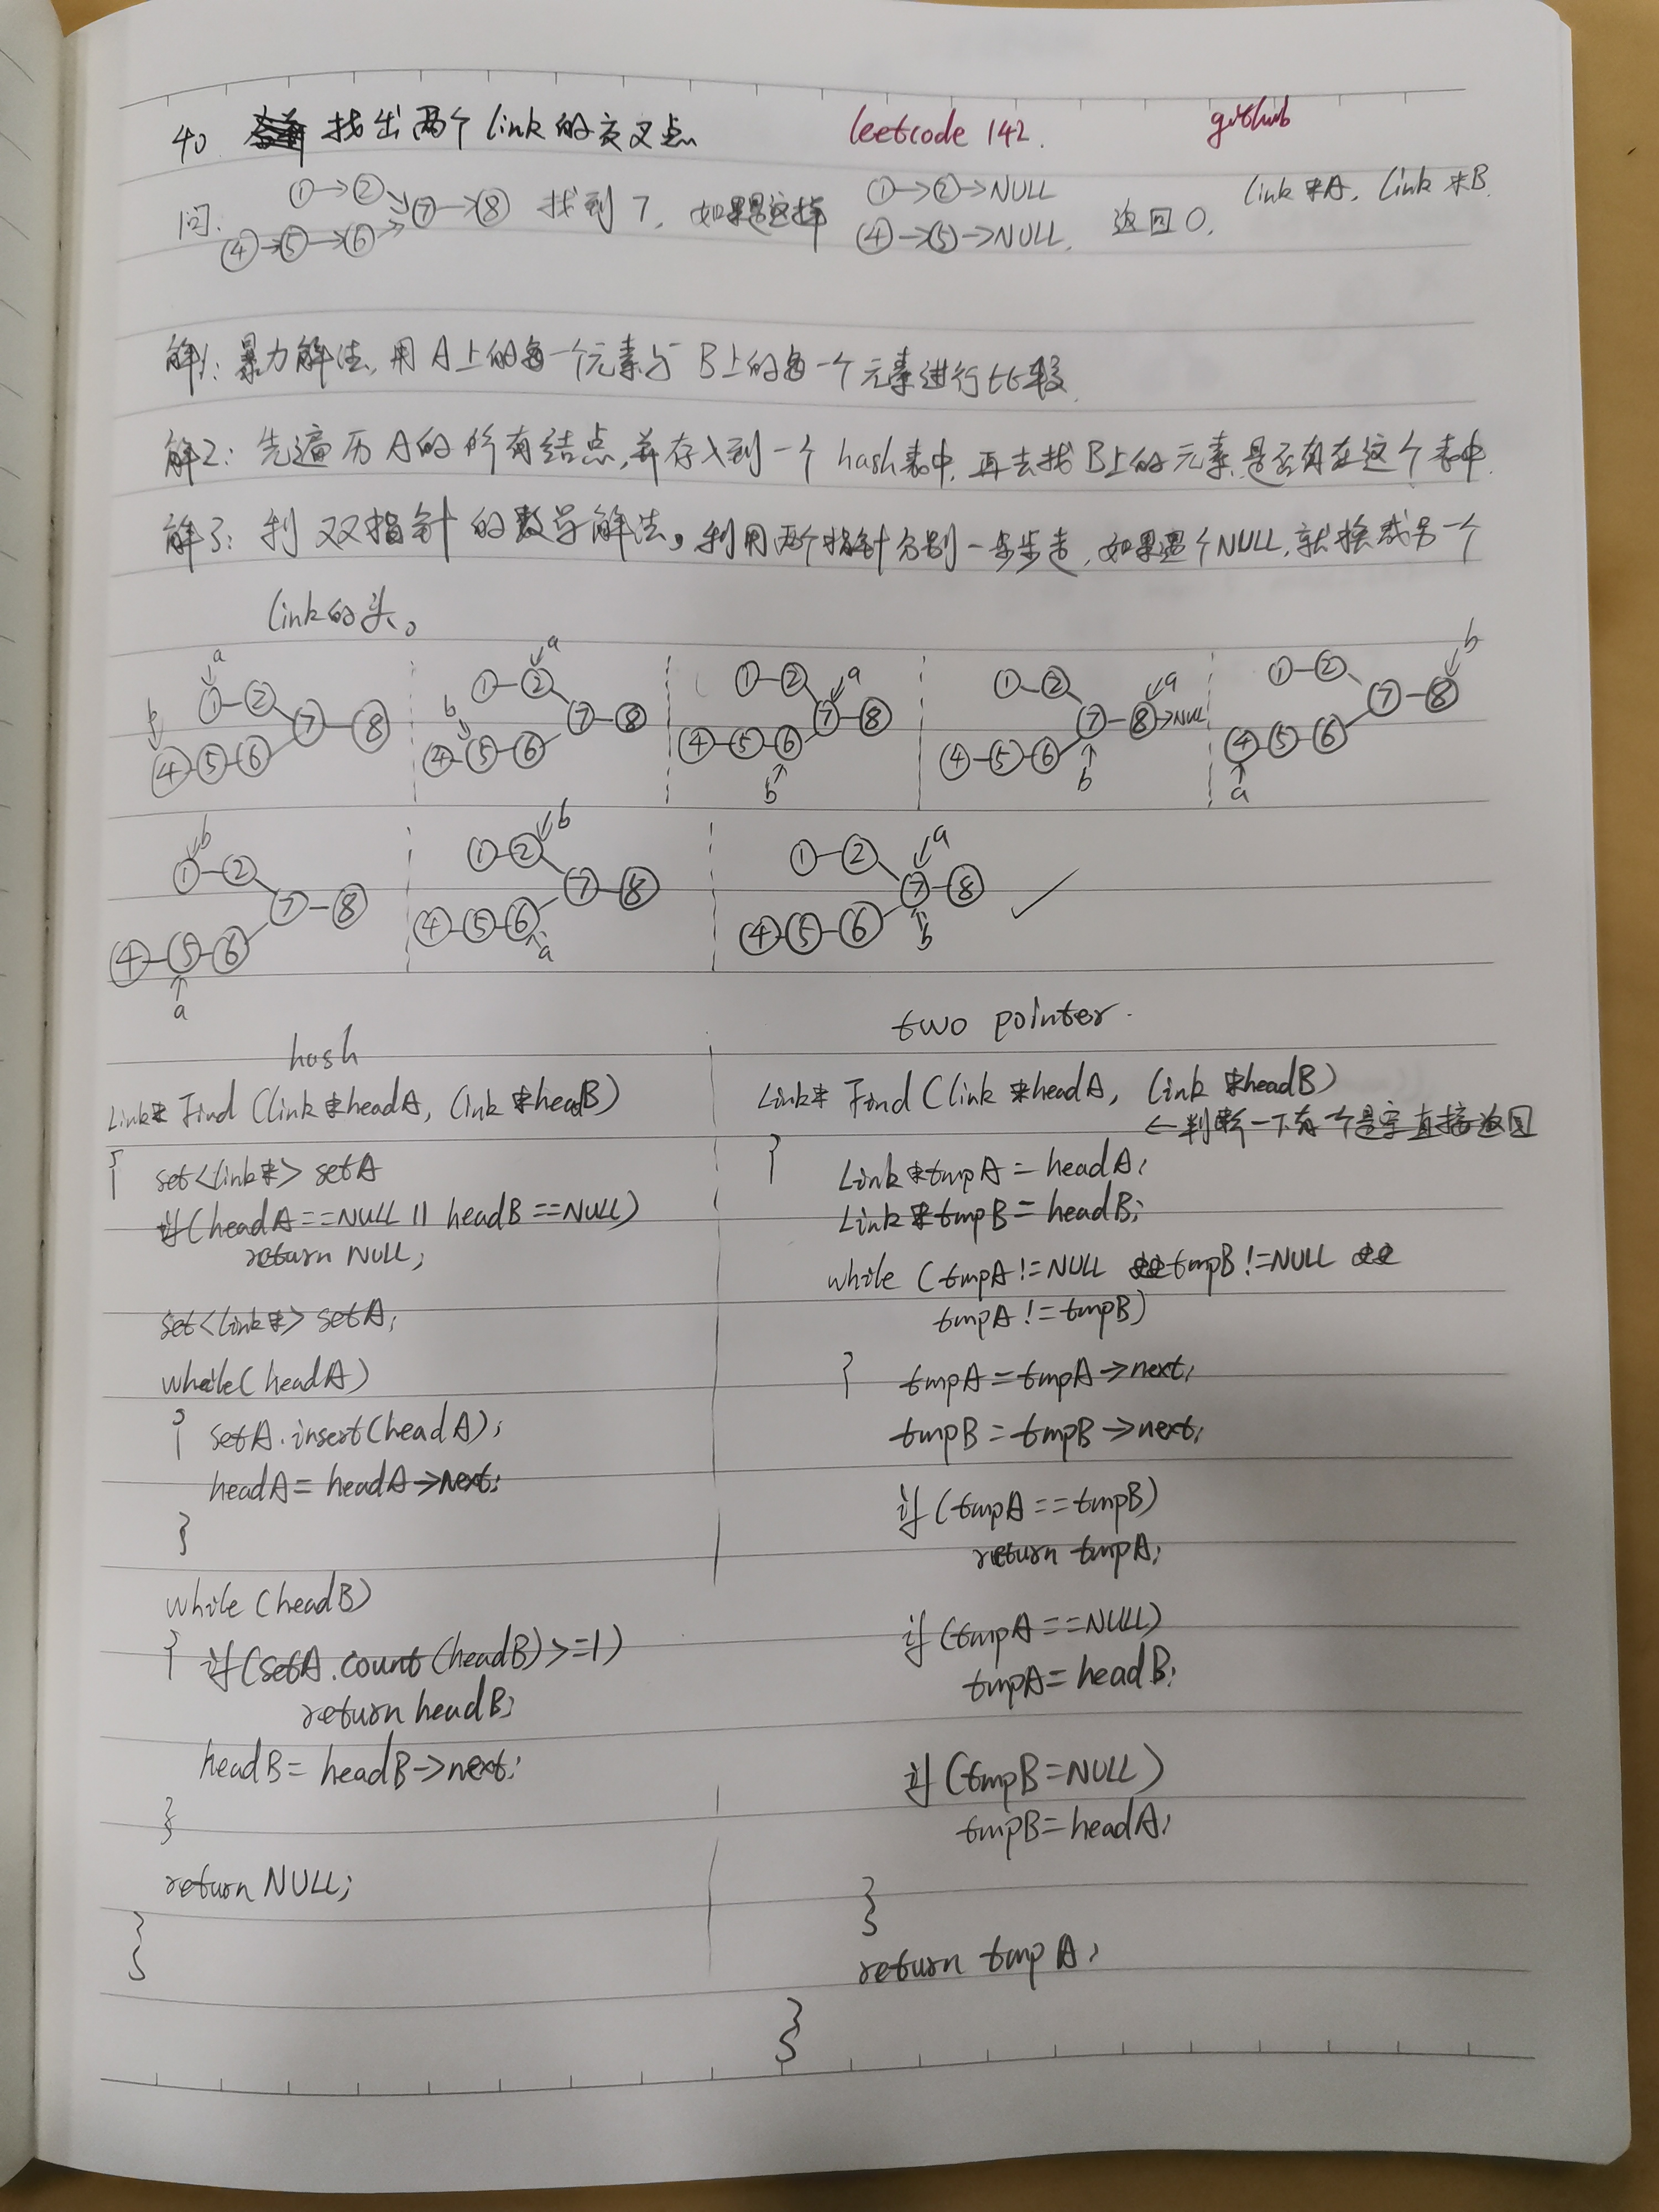 40 找出两个link的交叉点 leetcode 142. github
问. ①→②→⑦→⑧ 找到7, 如果是这样 ①→②→NULL link *A, link *B.
④→⑤→⑥→ ④→⑤→NULL. 返回0,
解1: 暴力解法, 用A上的每一个元素与B上的每一个元素进行比较.
解2: 先遍历A的所有结点,并存入到一个hash表中, 再去找B上的元素是否有在这个表中.
解3: 利双指针的数学解法, 利用两个指针分别一步步走, 如果遇个NULL, 就换成另一个
link的头。
a a a a b
①-② ①-② ①-② ①-② ①-②
b b
⑦-⑧ ⑦-⑧ ⑦-⑧ ⑦-⑧→NULL ⑦-⑧
④-⑤-⑥ ④-⑤-⑥ ④-⑤-⑥ ④-⑤-⑥ ④-⑤-⑥
b b a
b b a
①-② ①-② ①-②
⑦-⑧ ⑦-⑧ ⑦-⑧ ✓
④-⑤-⑥ ④-⑤-⑥ ④-⑤-⑥
a a b
hash
Link* Find (link *headA, link *headB)
{ set<link*> setA
if (headA==NULL || headB==NULL)
return NULL;
set<link*> setA;
while(headA)
{ setA.insert(headA);
headA = headA->next;
}
while (headB)
{ if (setA.count(headB)>=1)
return headB;
headB = headB->next;
}
return NULL;
}
two pointer.
Link* Find (link *headA, link *headB)
←判断一下有一个是空直接返回
{ Link *tmpA = headA;
Link *tmpB = headB;
while (tmpA!=NULL && tmpB!=NULL &&
tmpA!=tmpB)
{ tmpA = tmpA->next;
tmpB = tmpB->next;
if (tmpA==tmpB)
return tmpA;
if (tmpA==NULL)
tmpA = headB;
if (tmpB=NULL)
tmpB = headA;
}
return tmpA;
}